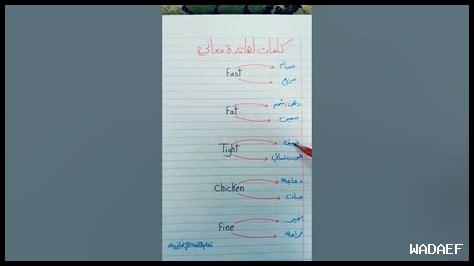 كلمات لها عدة معاني
Fast
صيام
سريع
Fat
دهن، شحم
سمين
Tight
ضيق
Chicken
دجاجة
جبان
Fine
بخير
غرامة
تعلم اللغة الإنجليزية
WADAEF